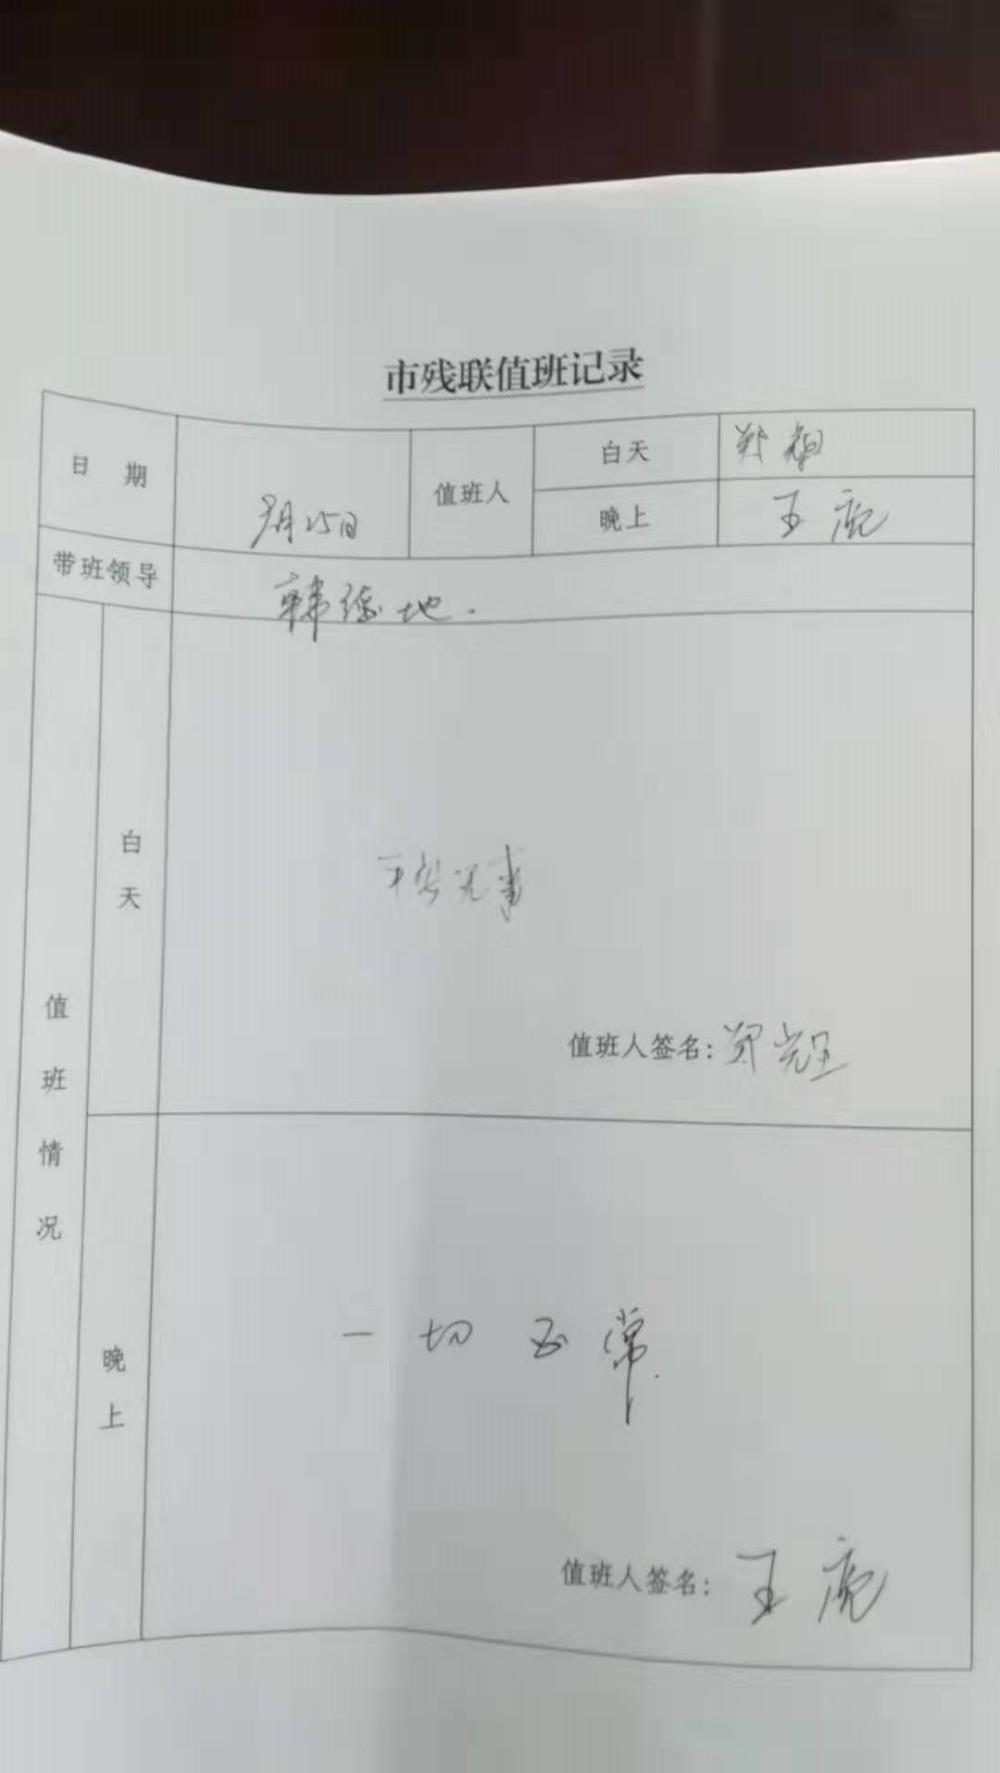 市残联值班记录
日 期
9月25日
值班人
白天
郑
晚上
王
带班领导
韩德地.
值班情况
白天
平安无事
值班人签名: 郑
晚上
一切正常.
值班人签名: 王